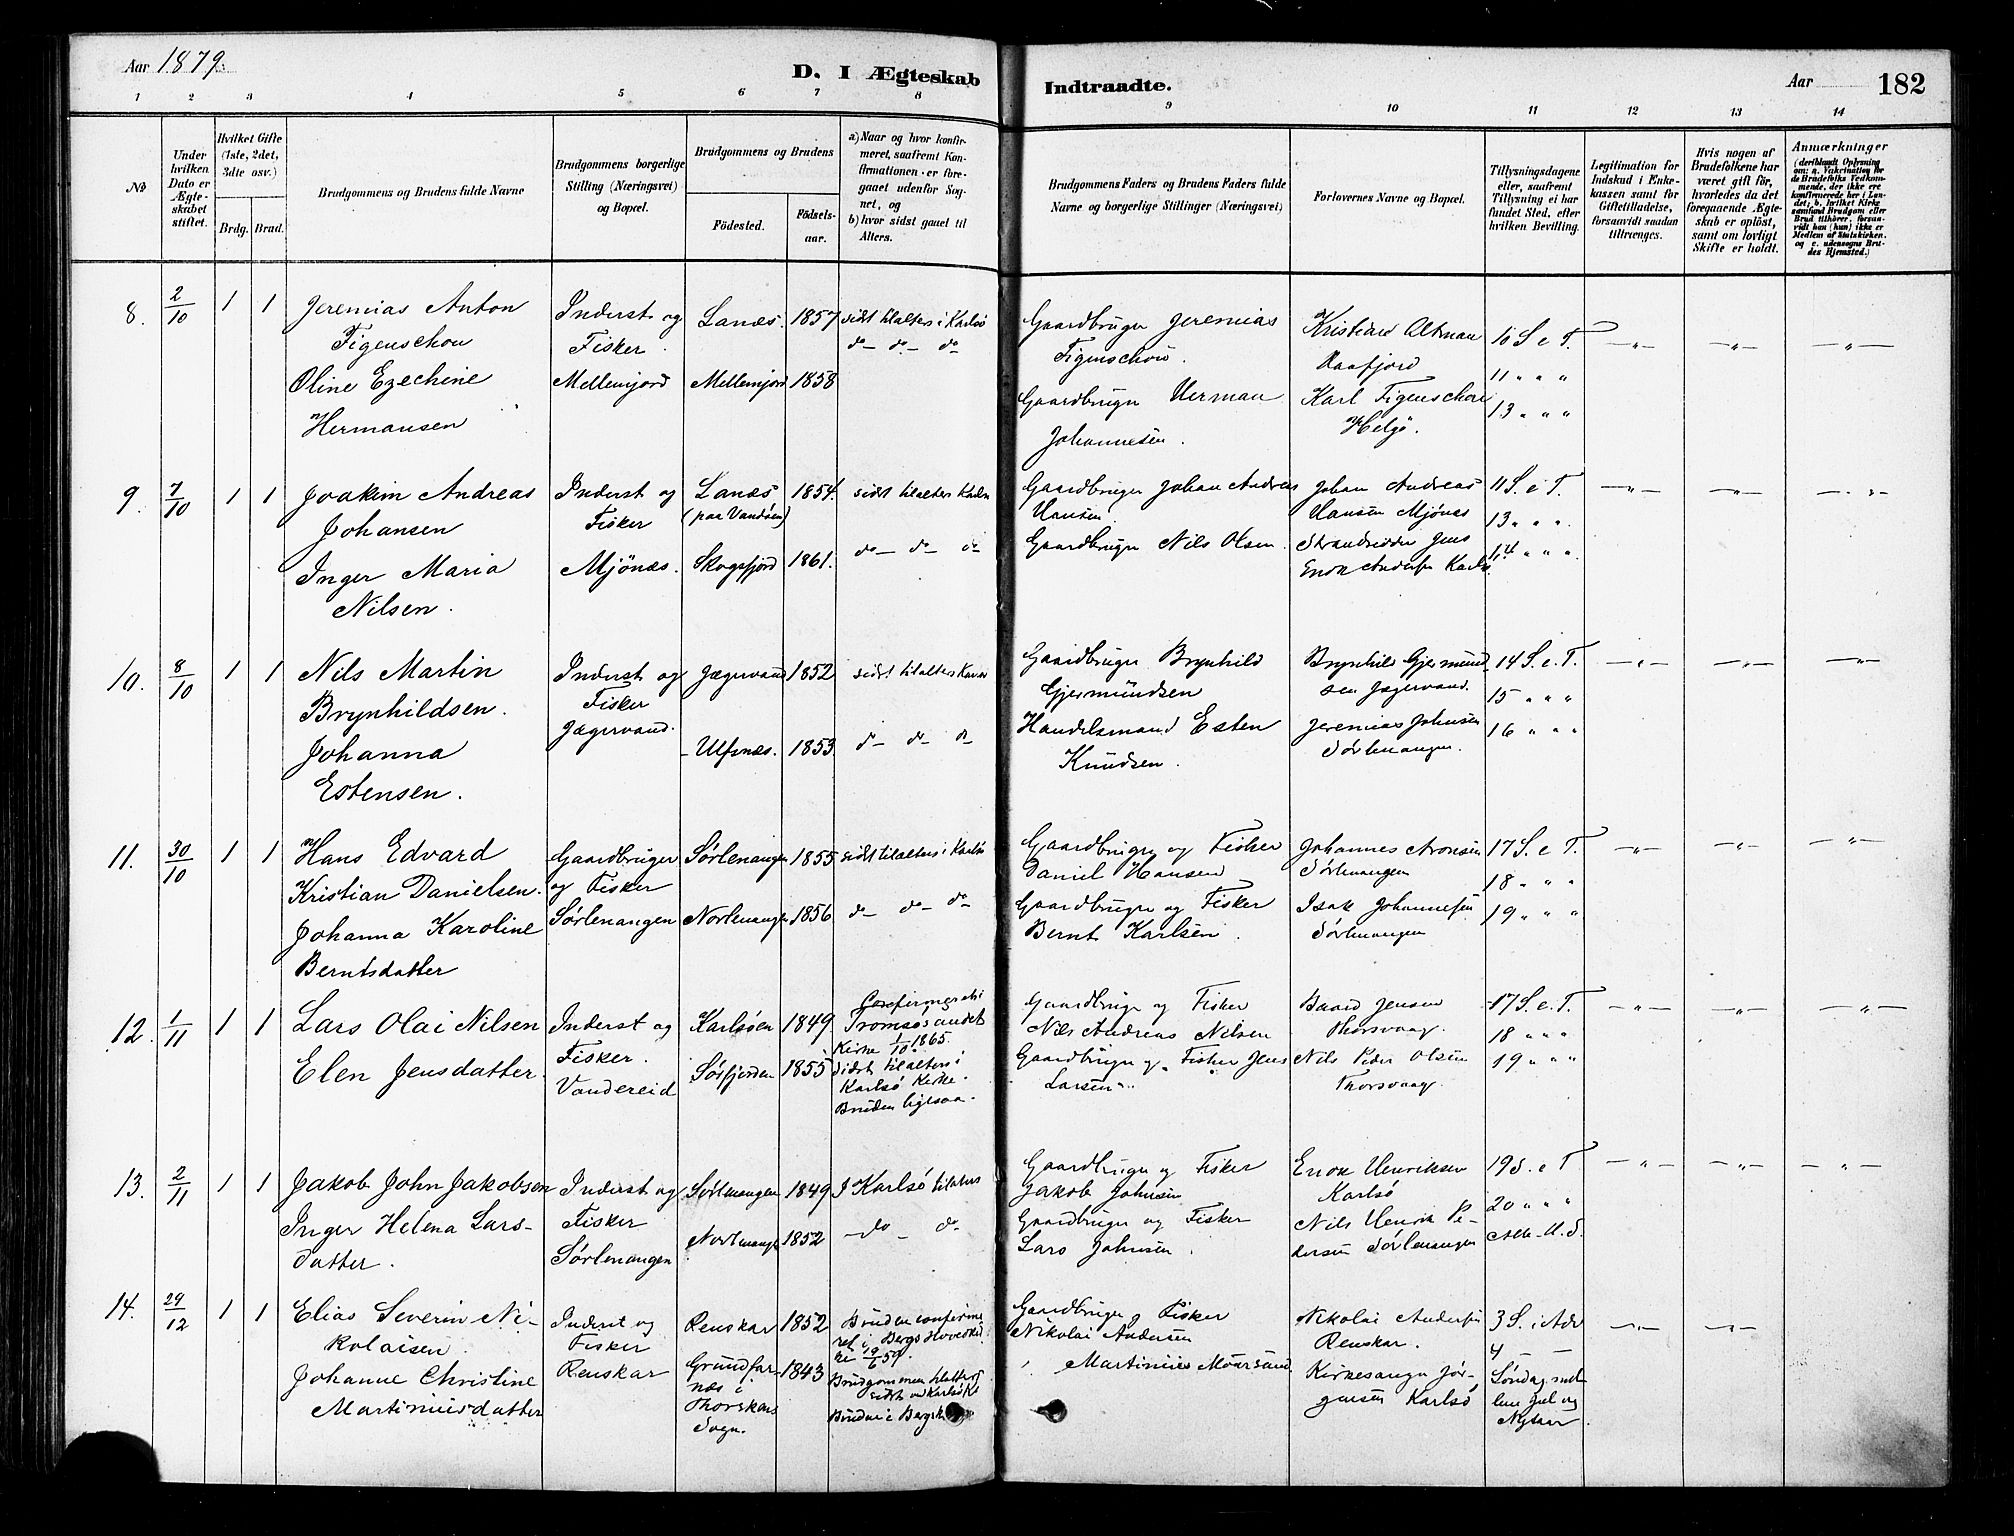 Aar 1879.
D. I Ægteskab
Indtraadte.
Aar
182
1 2 3 4 5 6 7 8 9 10 11 12 13 14
No
Under hvilken Dato er Ægteskabet stiftet.
Hvilket Gifte (1ste, 2det, 3dte osv.)
Brdg. Brud.
Brudgommens og Brudens fulde Navne
Brudgommens borgerlige Stilling (Næringsvei) og Bopæl.
Brudgommens og Brudens
Fødested.
Fødsels-aar.
a) Naar og hvor konfir-
meret, saafremt Kon-
firmationen er fore-
gaaet udenfor Sog-
net, og
b) hvor sidst gaaet til
Alters.
Brudgommens Faders og Brudens Faders fulde
Navne og borgerlige Stillinger (Næringsvei)
Forlovernes Navne og Bopæl.
Tillysningsdagene
eller, saafremt
Tillysning ei har
fundet Sted, efter
hvilken Bevilling.
Legitimation for
Indskud i Enke-
kassen samt for
Giftetilladelse,
forsaavidt saadan
tiltrænges.
Hvis nogen af
Brudefolkene har
været gift før,
hvorledes da det
foregaaende Ægte-
skab er opløst,
samt om lovligt
Skifte er holdt.
Anmærkninger
(deriblandt Oplysning
om: a. Vakcination for
de Brudefolks Vedkom-
mende, der ikke ere
konfirmerede her i Lan-
det; b. hvilket Kirke
samfund Brudgom eller
Brud tilhører, forsaa-
vidt han (hun) ikke er
Medlem af Statskirken,
og c. udensogns Bru-
des Hjemsted.)
8. 2/10 1 1 Jeremias Anton
Figenschou
Oline Ezechine
Hermansen
Inderst og
Fisker
Mellemjord
Lanæs. 1857
Mellemjord 1858
sidst tilalters i Karlsö
do do do
Gaardbruger Jeremias
Figenschou.
Gaardbruger Herman
Johannesen.
Kristian Altman
Raafjord
Karl Figenschou
Helgö.
10 S. e T.
11 " " "
13 " " "
9 7/10 1 1 Joakim Andreas
Johansen
Inger Maria
Nilsen.
Inderst og
Fisker
Mjönæs.
Lanæs 1854.
(paa Vandöen)
Skogsfjord 1861.
sidst tilalters Karlsö
do do do
Gaardbruger Johan Andreas
Hansen.
Gaardbruger Nils Olsen.
Johan Andreas
Hansen Mjönæs
Strandsidder Jens
Enok Andersen Karlsö.
11 S. e T.
13 " " "
14 " " "
10. 8/10 1 1 Nils Martin
Brynhildsen.
Johanna
Estensen.
Inderst og
Fisker
Jægervand.
Jægervand 1852
Ulfsnæs. 1853
sidst tilalters
do do do
Gaardbruger Brynhild
Gjermundsen
Handelsmand Esten
Knudsen.
Brynhild Gjermund-
sen Jægervand.
Jeremias Johnsen
Sörlenangen.
14 S. e. T.
15 " " "
16 " " "
11. 30/10 1 1 Hans Edvard
Kristian Danielsen.
Johanna Karoline
Berntsdatter
Gaardbruger
og Fisker
Sørlenangen
Sørlenangen 1855
Norlenangen 1856
sidst tilalters i Karlsö
do do do
Gaardbruger og Fisker
Daniel Hansen
Gaardbruger og Fisker
Bernt Karlsen.
Johannes Aronsen
Sörlenangen
Isak Johannesen
Sörlenangen
17 S. e T.
18 " " "
19 " " "
12. 1/11 1 1 Lars Olai Nilsen
Elen Jensdatter
Inderst og
Fisker.
Vandereid
Karlsöen 1849
Sörfjorden 1855
Tromsö Landet
Kirke 1/10 1865.
Sidst tilalters i
Karlsö Kirke.
Bruden ligesaa.
Gaardbruger og Fisker
Nils Andreas Nilsen
Gaardbruger og Fisker Jens
Larsen
Baard Jensen
Thorsvaag.
Nils Peder Olsen
Thorsvaag.
17 S. e. T.
18 " " "
19 " " "
13. 2/11 1 1 Jakob John Jakobsen
Inger Helena Lars-
datter.
Inderst og
Fisker
Sörlenangen
Sörlenangen 1849
Norlenangen 1852
I Karlsö tilalters
do do
Gaardbruger og Fisker
Jakob Johnsen
Gaardbruger og Fisker
Lars Johnsen.
Enok Henriksen
Karlsö
Nils Henrik Pe-
dersen Sörlenangen
19 S. e T
20 " " "
14. 29/12 1 1 Elias Severin Ni-
kolaisen.
Johanne Christine
Martiniusdatter
Inderst og
Fisker
Renskar
Renskar 1852
Grundfar- 1843
næs i
Thorskens
Sogn.
Bruden confirme
ret i Bergs Hovedkir
ke 19/6 59.
Brudgommen tilalters
sidst ved Karlsö K.
Gaardbruger og Fisker
Nikolai Andersen
Martinius
Nikolai Andersen
Renskar.
Kirkesanger Jör-
gensen Karlsö
3 S. i Adv
4 — —
Söndag mel
lem Jul og
Nytaar